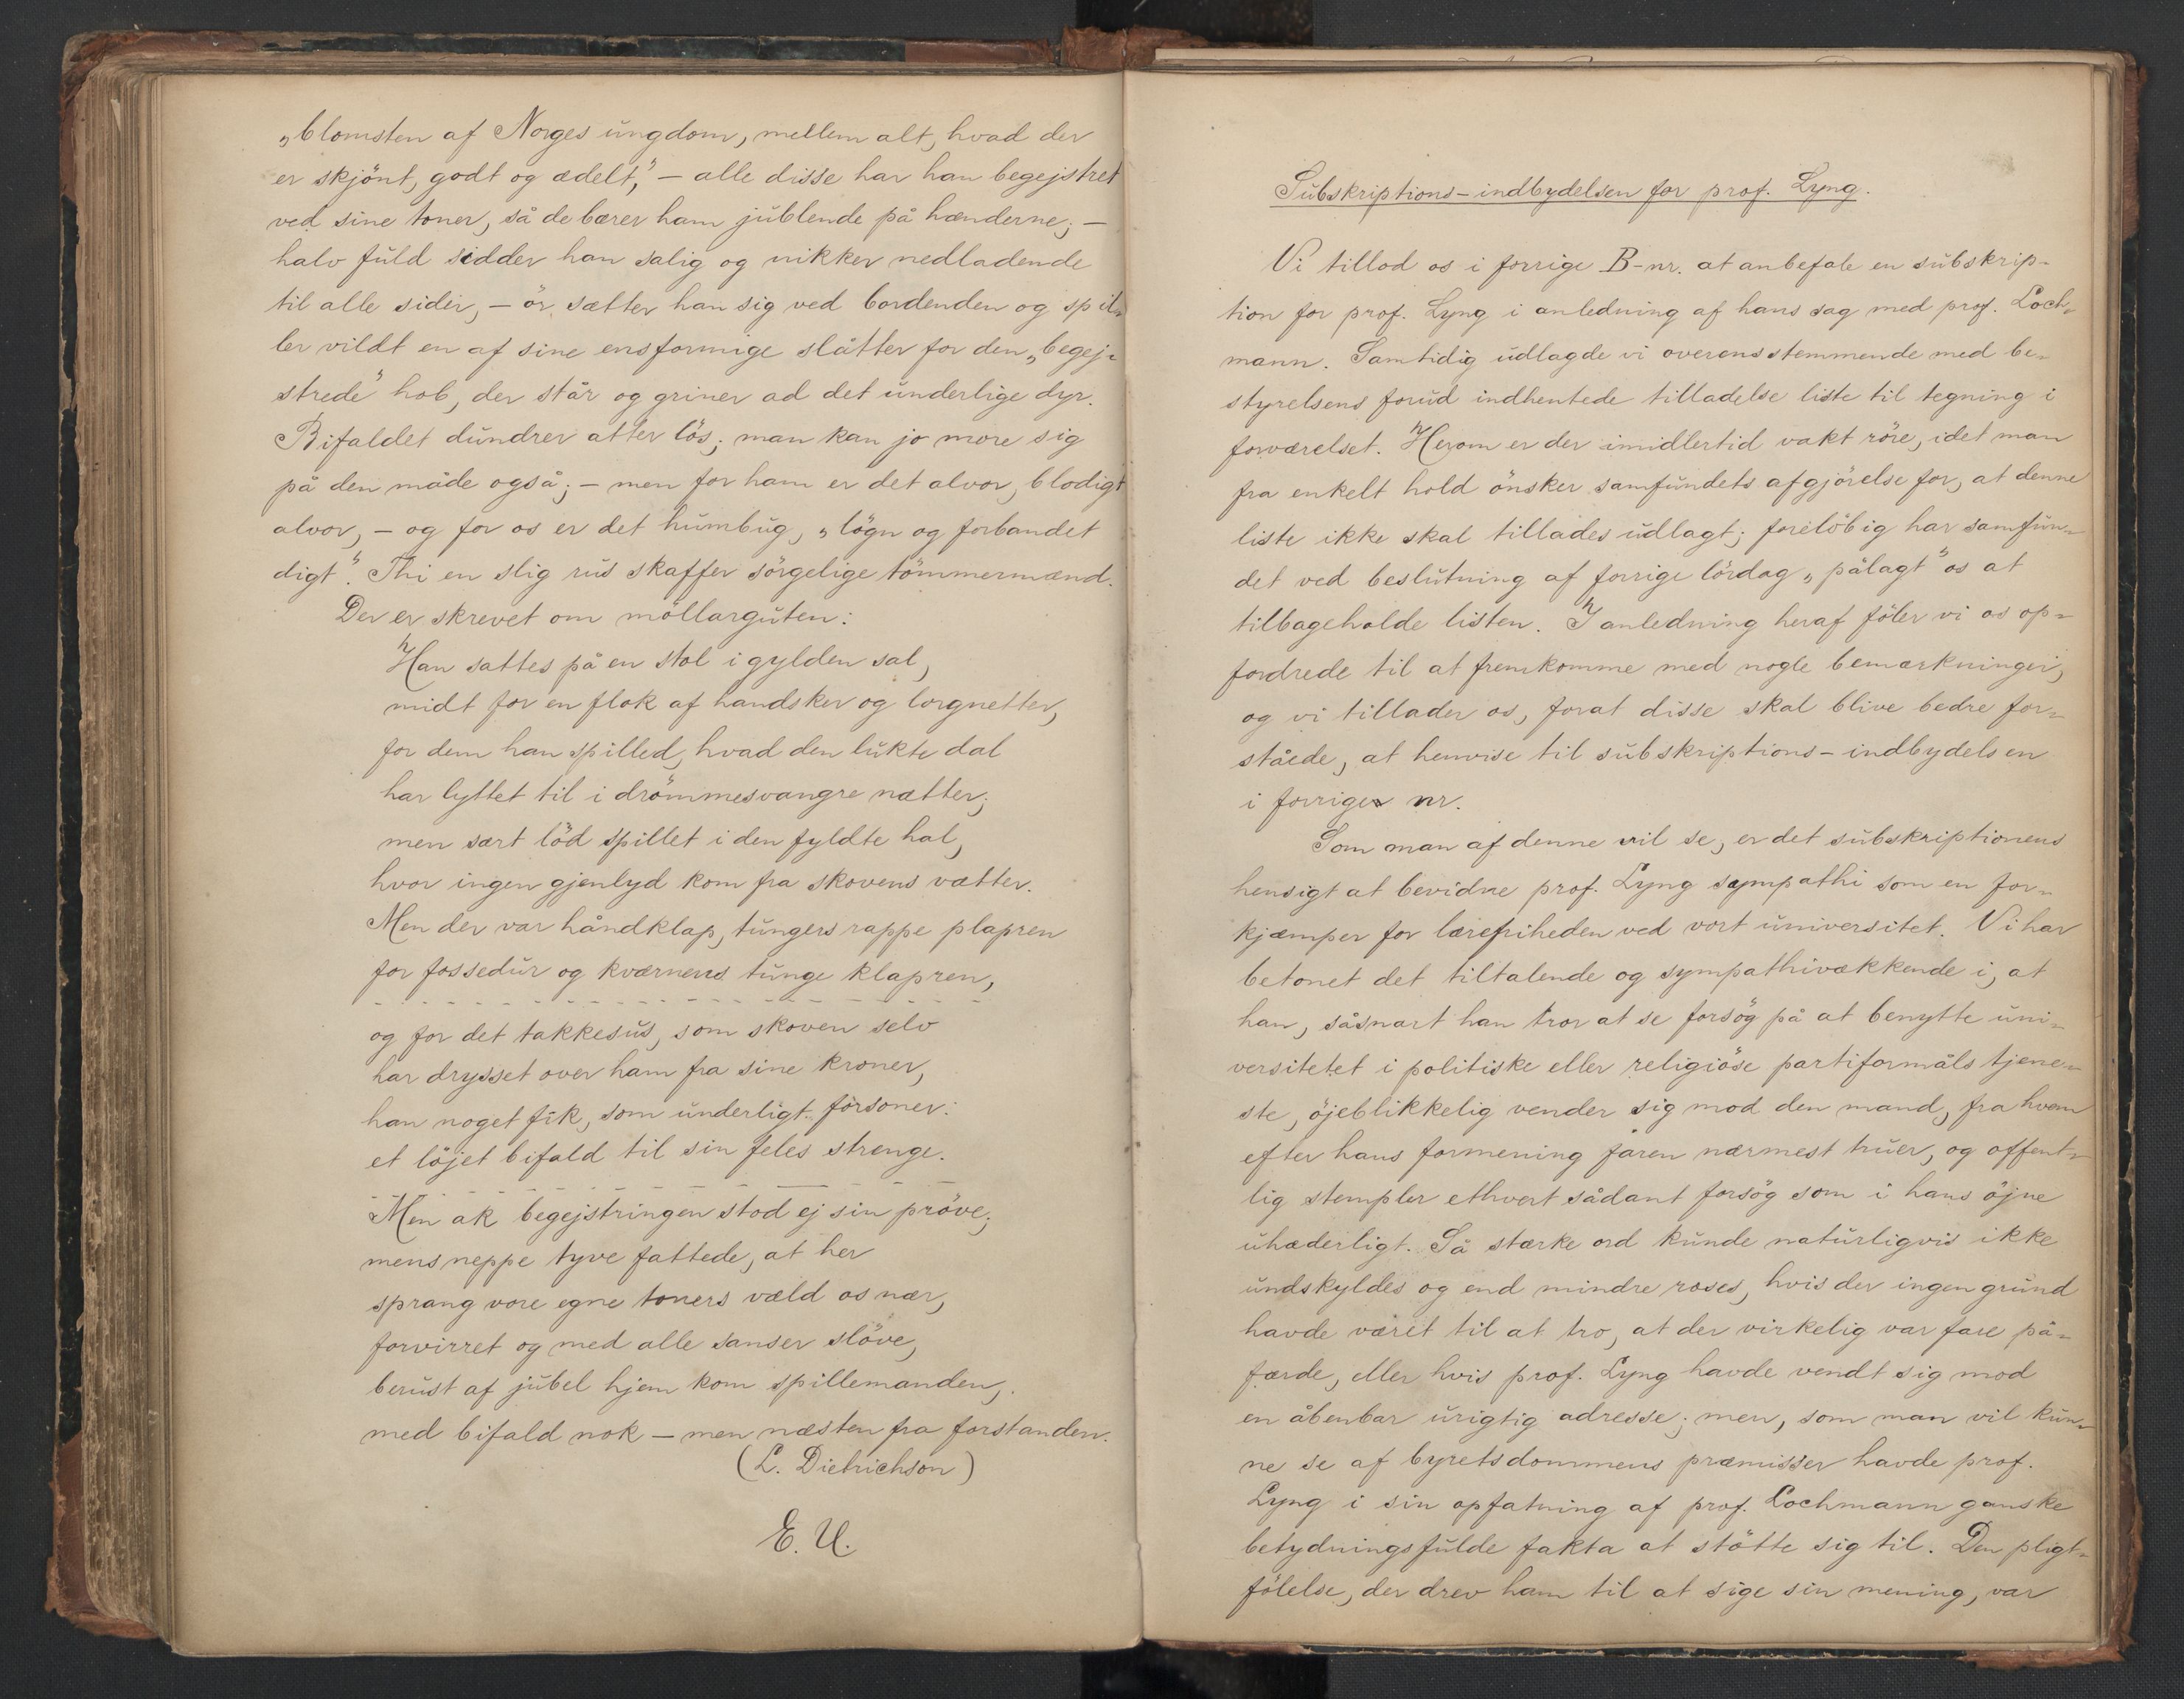 „blomsten af Norges ungdom, mellem alt, hvad der
er skjönt, godt og ædelt," – alle disse har han begejstret
ved sine toner, så de bærer ham jublende på hænderne; –
halv fuld sidder han salig og nikker nedladende
til alle sider, – ör sætter han sig ved bordenden og spil-
ler vildt en af sine ensformige slåtter for den „begej-
strede" hob, der står og griner ad det underlige dyr.
Bifaldet dundrer atter lös; man kan jo more sig
på den måde også; – men for ham er det alvor, blodigt
alvor, – og for os er det humbug, „lögn og forbandet
digt". Thi en slig rus skaffer sörgelige tömmermænd.
Der er skrevet om möllarguten:
Han sattes på en stol i gylden sal,
midt for en flok af handsker og lorgnetter,
for dem han spilled, hvad den lukte dal
har lyttet til i drömmesvangre nætter;
men sært löd spillet i den fyldte hal,
hvor ingen gjenlyd kom fra skovens vætter.
Men der var håndklap, tungers rappe plapren
for fossedur og kværnens tunge klapren,
- - - - - - - - - - - - - - - - -
og for det takkesus, som skoven selv
har drysset over ham fra sine kroner,
han noget fik, som underligt forsoner:
et löjet bifald til sin feles strenge.
- - - - - - - - - - - - - - - - -
Men ak begejstringen stod ej sin pröve;
mens neppe tyve fattede, at her
sprang vore egne toners væld os nær,
forvirret og med alle sanser slöve,
berust af jubel hjem kom spillemanden,
med bifald nok – men næsten fra forstanden.
(L. Dietrichson)
E. U.
Subskriptions-indbydelsen for prof. Lyng.
Vi tillod os i forrige B-nr. at anbefale en subskrip-
tion for prof. Lyng i anledning af hans sag med prof. Loch-
mann. Samtidig udlagde vi overensstemmende med be-
styrelsens forud indhentede tilladelse liste til tegning i
forværelset. Herom er der imidlertid vakt röre, idet man
fra enkelt hold önsker samfundets afgjörelse for, at denne
liste ikke skal tillades udlagt; forelöbig har samfun-
det ved beslutning af forrige lördag „pålagt" os at
tilbageholde listen. I anledning heraf föler vi os op-
fordrede til at fremkomme med nogle bemærkninger,
og vi tillader os, forat disse skal blive bedre for-
ståede, at henvise til subskriptions-indbydelsen
i forrige nr.
Som man af denne vil se, er det subskriptionens
hensigt at bevidne prof. Lyng sympathi som en for-
kjæmper for lærefriheden ved vort universitet. Vi har
betonet det tiltalende og sympathivækkende i, at
han, såsnart han tror at se forsög på at benytte uni-
versitetet i politiske eller religiöse partiformåls tjene-
ste, öjeblikkelig vender sig mod den mand, fra hvem
efter hans formening faren nærmest truer, og offent-
lig stempler ethvert sådant forsög som i hans öjne
uhæderligt. Så stærke ord kunde naturligvis ikke
undskyldes og end mindre roses, hvis der ingen grund
havde været til at tro, at der virkelig var fare på-
færde, eller hvis prof. Lyng havde vendt sig mod
en åbenbar urigtig adresse; men, som man vil kun-
ne se af byretsdommens præmisser havde prof.
Lyng i sin opfatning af prof. Lochmann ganske
betydningsfulde fakta at stötte sig til. Den pligt-
fölelse, der drev ham til at sige sin mening, var